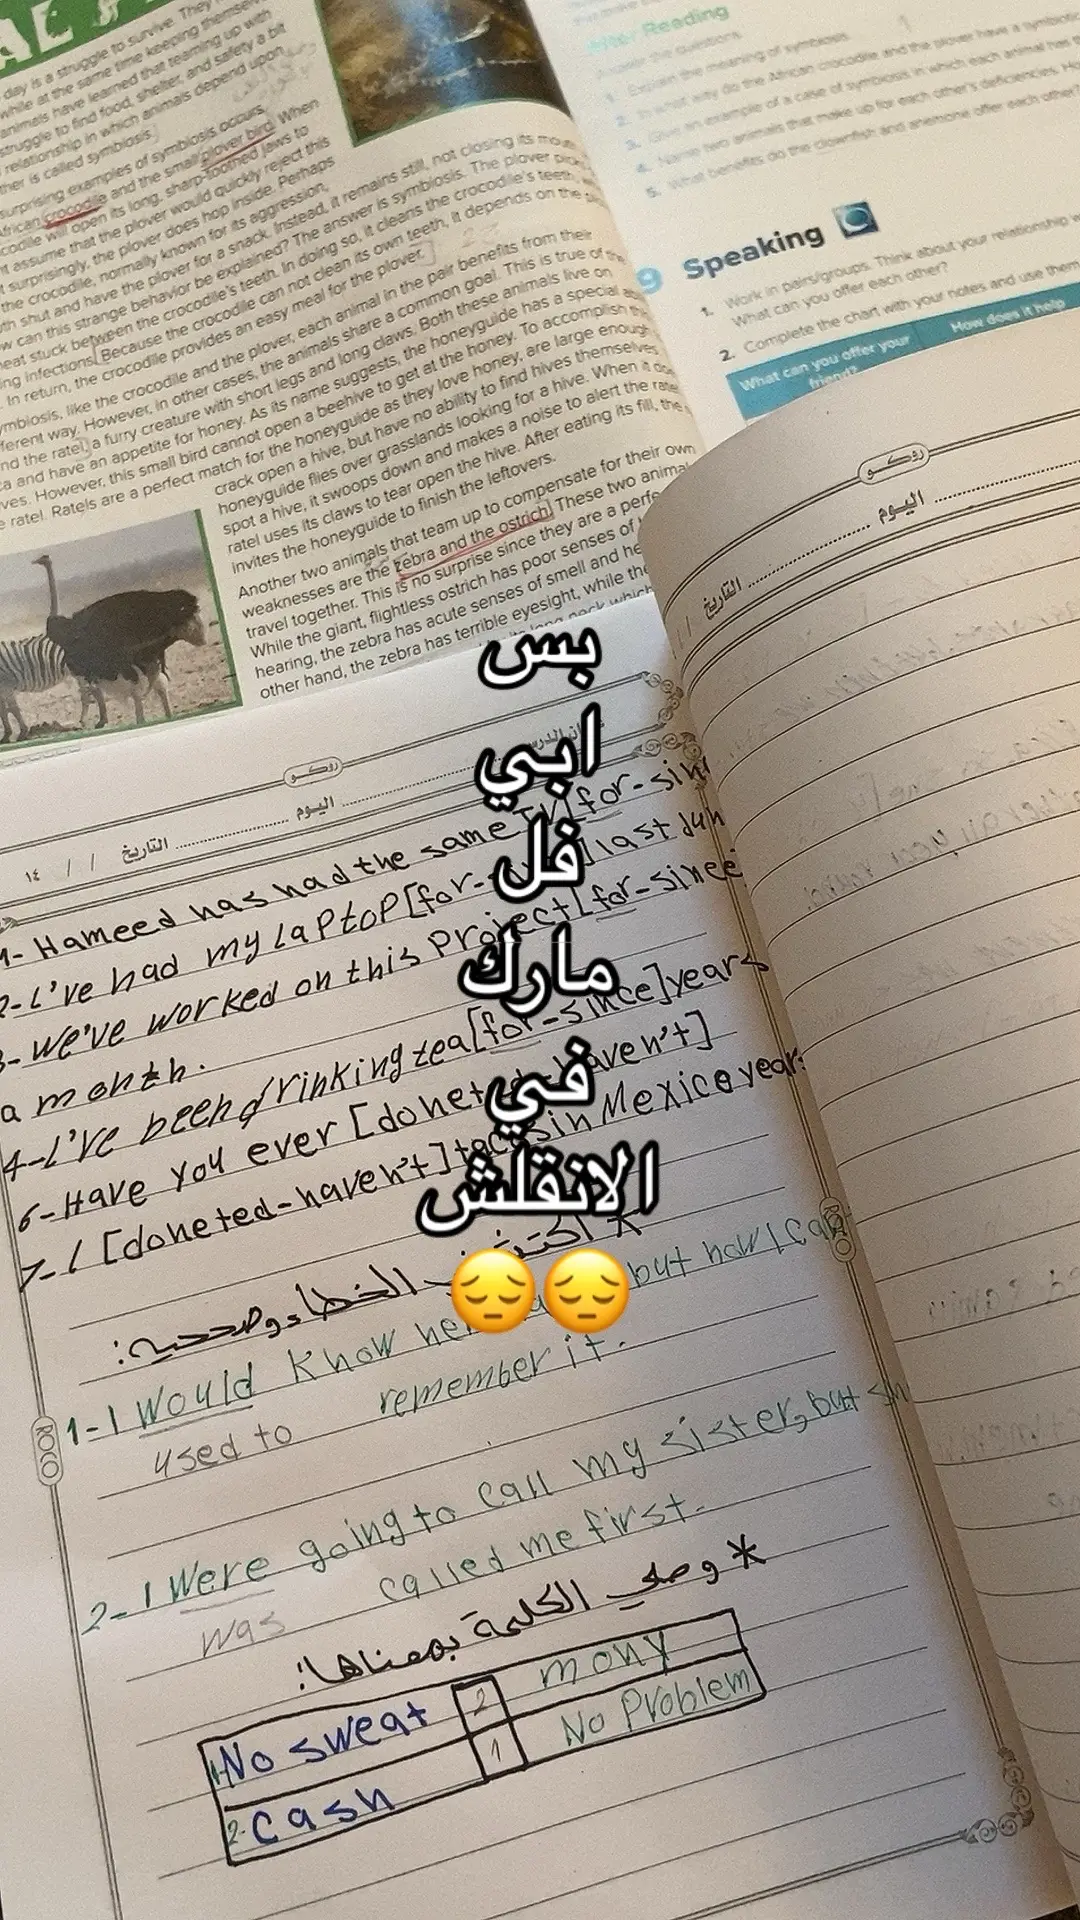 day is a struggle to survive. They
while at the same time keeping themselves
animals have learned that teaming up with
struggle to find food, shelter, and safety a bit
relationship in which animals depend upon
ther is called symbiosis.
surprising examples of symbiosis occurs
African crocodile and the small plover bird. When
codile will open its long, sharp-toothed jaws to
assume that the plover would quickly reject this
surprisingly, the plover does hop inside. Perhaps
the crocodile, normally known for its aggression,
th shut and have the plover for a snack. Instead, it remains still, not closing its mouth
can this strange behavior be explained? The answer is symbiosis. The plover
eat stuck between the crocodile's teeth. In doing so, it cleans the crocodile's teeth,
ing infections. Because the crocodile can not clean its own teeth, it depends on the
In return, the crocodile provides an easy meal for the plover.
symbiosis, like the crocodile and the plover, each animal in the pair benefits from their
ferent way. However, in other cases, the animals share a common goal. This is true of the
nd the ratel, a furry creature with short legs and long claws. Both these animals live on
a and have an appetite for honey. As its name suggests, the honeyguide has a special
ves. However, this small bird cannot open a beehive to get at the honey. To accomplish
ratel. Ratels are a perfect match for the honeyguide as they love honey, are large enough
crack open a hive, but have no ability to find hives themselves.
honeyguide flies over grasslands looking for a hive. When it
spot a hive, it swoops down and makes a noise to alert the ratel
ratel uses its claws to tear open the hive. After eating its fill, the
invites the honeyguide to finish the leftovers.
Another two animals that team up to compensate for their own
weaknesses are the zebra and the ostrich. These two animal
travel together. This is no surprise since they are a perfe
While the giant, flightless ostrich has poor senses of
hearing, the zebra has acute senses of smell and he
other hand, the zebra has terrible eyesight, while the
neck which
After Reading
Answer the questions.
1. Explain the meaning of symbiosis.
2. In what way do the African crocodile and the plover have a symbiotic
3. Give an example of a case of symbiosis in which each animal has
4. Name two animals that make up for each other's deficiencies.
5. What benefits do the clownfish and anemone offer each other?
9 Speaking
1. Work in pairs/groups. Think about your relationship
What can you offer each other?
2. Complete the chart with your notes and use them
What can you offer your friend?
How does it help
روكو
اليوم
التاريخ / /
بس
ابي
فل
مارك
في
الانقلش
😔😔
روكو
اليوم
التاريخ / / ١٤
1- Hameed has had the same TV [for-sin
2- I've had my laptop [for- ] last Jun
3- we've worked on this Project [for-since]
a month.
4- I've been drinking tea [for-since] years
6- Have you ever [doneted-haven't]
7- I [doneted-haven't] tacos in Mexico year
* اكتشفي الخطاء وصححيه:
1- I Would Know her but now I can
used to remember it.
2- I Were going to call my sister, but sh
was called me first.
* وصلي الكلمة بمعناها:
1- No sweat 2 mony
2- Cash 1 No Problem
ROCO
ROCO